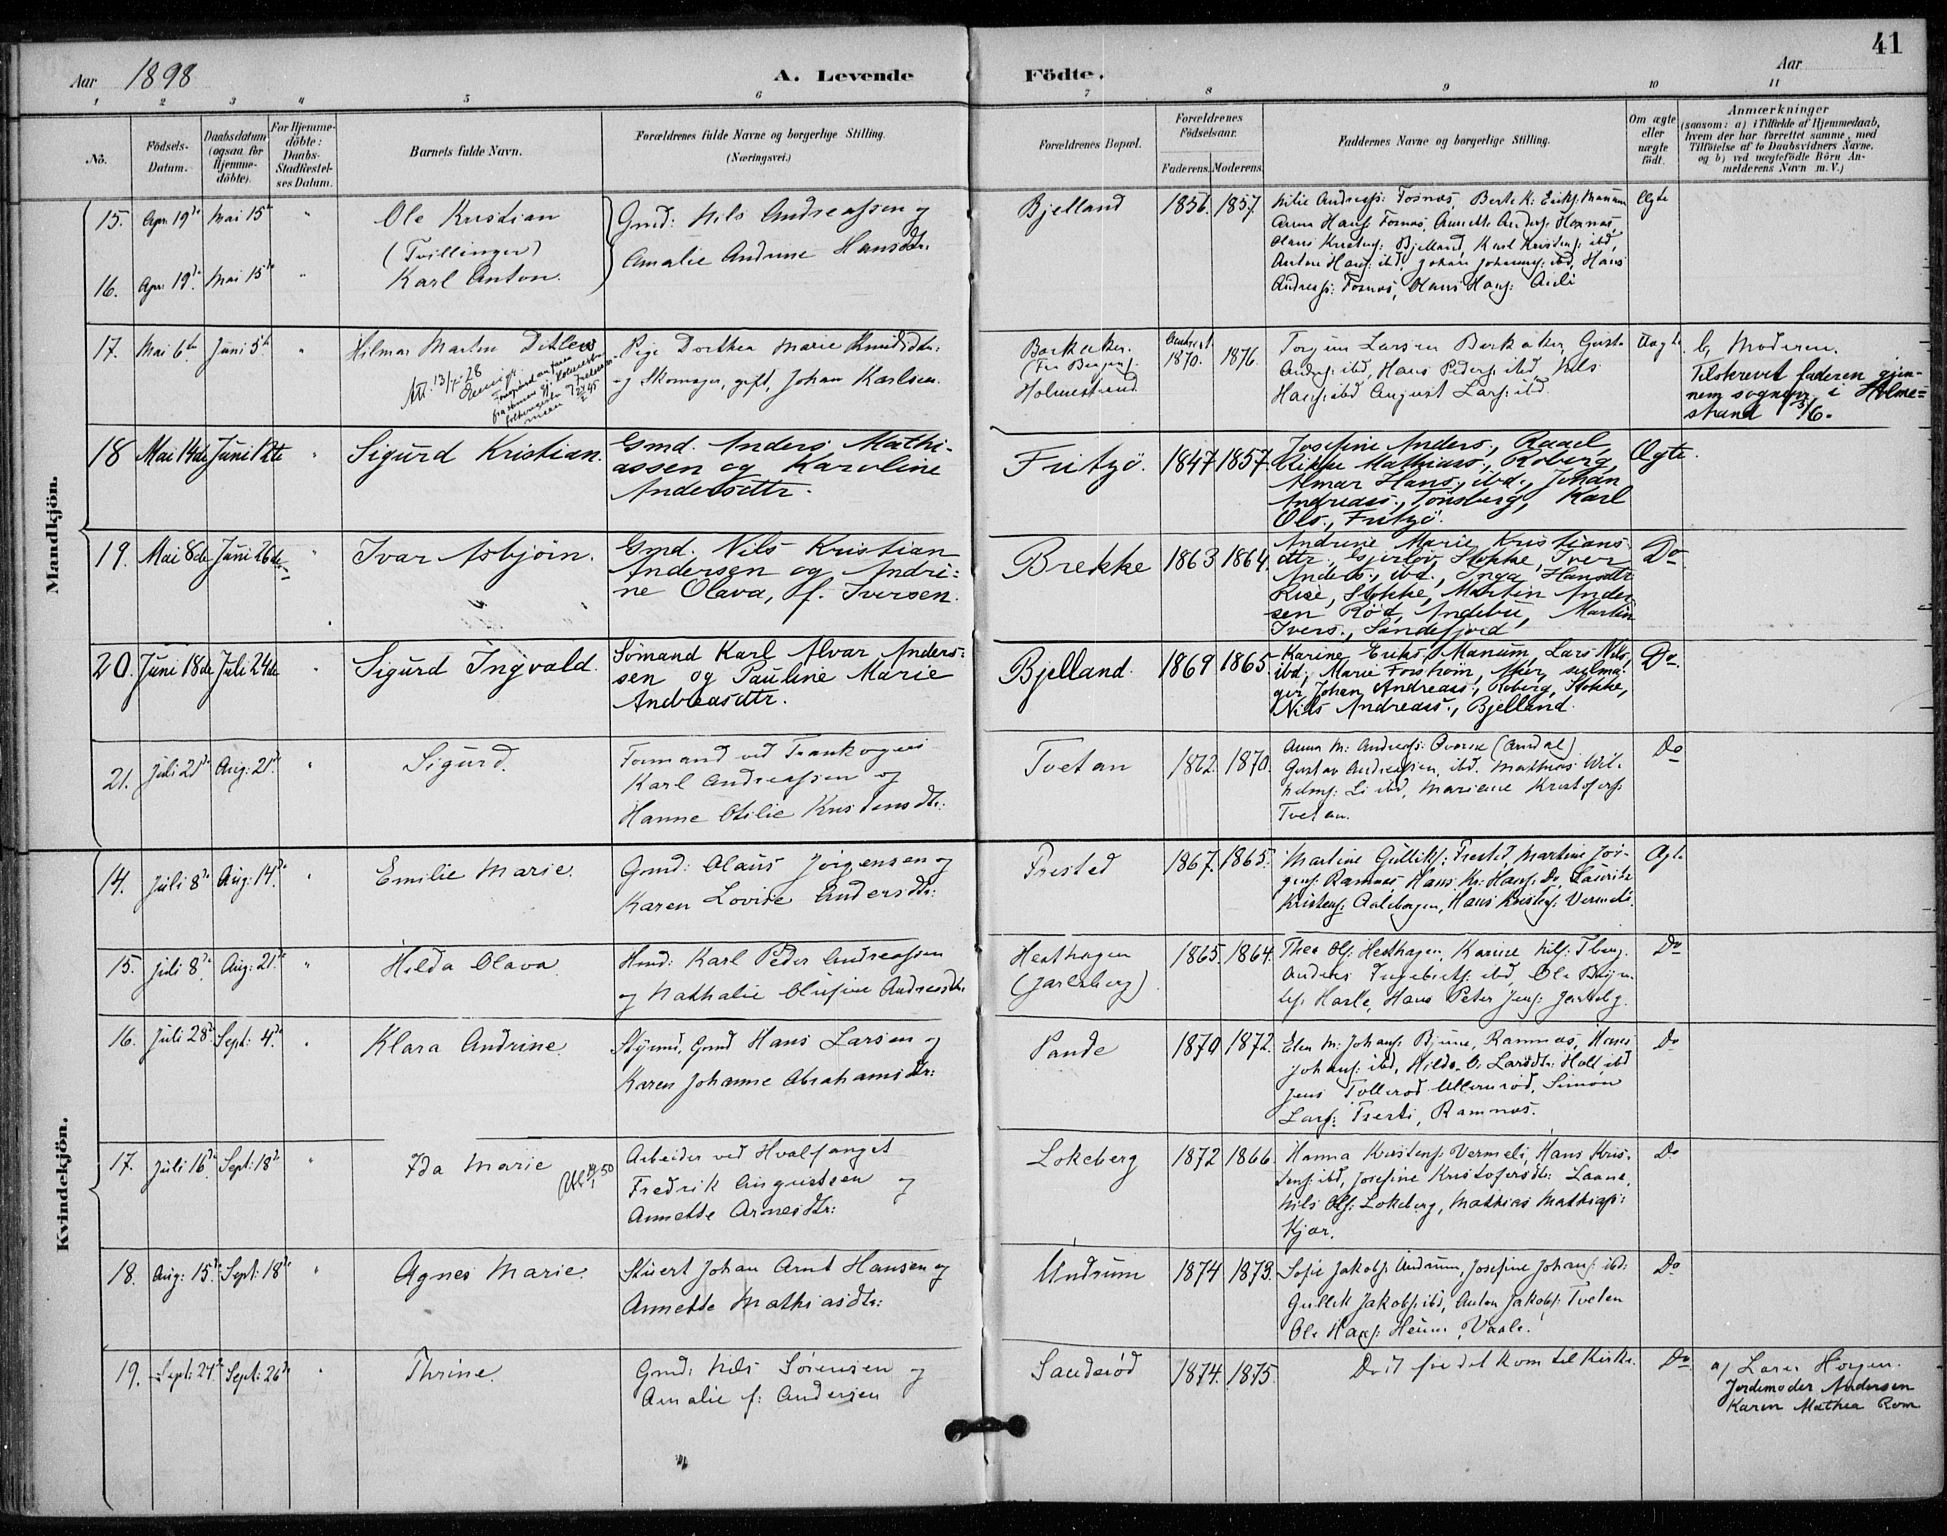 41
Aar 1898 A. Levende Födte. Aar
1 2 3 4 5 6 7 8 9 10 11
No.
Födsels-Datum.
Daabsdatum (ogsaa for Hjemme-döbte).
For Hjemme-döbte: Daabs-Stadfæstel-ses Datum.
Barnets fulde Navn.
Forældrenes fulde Navne og borgerlige Stilling.
(Næringsvei.)
Forældrenes Bopæl.
Forældrenes Födselsaar.
Faderens. Moderens.
Faddernes Navne og borgerlige Stilling.
Om ægte eller uægte födt.
Anmærkninger
(saasom: a) i Tilfælde af Hjemmedaab,
hvem der har forrettet samme, med
Tilföielse af to Daabsvidners Navne,
og b) ved uægtefödte Börn An-
melderens Navn m. V.)
Mandkjön.
15. Apr. 19de Mai 15de " Ole Kristian
(Tvillinger)
16. Apr. 19de Mai 15de " Karl Anton.
Gmd: Nils Andreassen og
Amalie Andrine Hansdtr.
Bjelland 1856. 1857.
Anna Hans: Fosnæs, Annette Anders: Hornæs,
Bjelland, Karl Kristens: ibd,
Anton Hans: ibd, Johan Johannes: ibd, Hans
Andreas: Fosnæs, Olaus Hans:
Ægte
17. Mai 6te Juni 5te " Hilmar Martin Ditlev
Att. 13/7-28
Pige Dorthea Marie Knudsdtr:
og Skomager, gift, Johan Karlsen.
Barkaker.
Holmestrand
1870. 1876.
Torgine Larsen Barkaker,
Anders: ibd, Hans Peders: ibd, Nils
Hans: ibd August Lars: ibd.
Uægte b, Moderen.
Tilskrevet faderen gjen-
nem sognepr. i Holme=
strand 3/6.
18 Mai 14de Juni 12te " Sigurd Kristian.
Gmd. Anders Mathi-
assen og Karoline
Andersdtr.
Fritzø. 1847 1857.
Josefine Anders.,
Rikke Mathiass., Roberg,
Almar Hans., ibd., Johan
Andreas., Tønsberg, Karl
Ols., Fritzø.
Ægte.
19. Mai 8de Juni 26de " Ivar Asbjørn.
Gmd. Nils Kristian
Andersen og Andri=
ne Olava, f. Iversen.
Brekke 1863 1864.
Andrine Marie Kristians
dtr. Gjerløv, Stokke, Iver
Anders., ibd., Inga Hansdtr
Rise, Stokke, Martin Ander
sen Rød, Andebu, Martin
Ivers., Sandefjord
Do
20. Juni 18de Juli 24de " Sigurd Ingvald.
Sømand Karl Alvar Anders=
sen og Pauline Marie
Andreasdtr.
Bjelland. 1869 1865.
Karine Eriks., Manum, Lars Nils.,
ibd, Marie Forstrøm, seilma-
ger, Johan Andreass., Roberg, Stokke,
Nils Andreass., Bjelland.
Do.
21. Juli 21de Aug: 21de " Sigurd.
Formand ved Trankogeri
Karl Andreassen og
Hanne Otilie Kristensdtr:
Tvetan 1862. 1870.
Anna M: Andreas: (Arndal)
Gustav Andreassen, ibd. Mathias Wil-
helms: Li ibd, Mariane Kristofers:
Tvetan.
Do
Kvindekjön.
14. Juli 8de Aug: 14de " Emilie Marie.
Gmd: Olaus Jørgensen og
Karen Lovise Andersdtr:
Trested 1867. 1865.
Martine Gulliks: Trested, Martine Jør-
gens: Ramnæs, Hans Kr: Hans: Do, Laurits
Kristens: Hans Kristofs: Vermeli.
Ægte
15. Juli 8de Aug: 21de " Hilda Olava
Hmd: Karl Peder Andreassen
og Nathalie Olufine Andreasdtr.
Hesthagen
(Jarlsberg)
1865. 1864.
Thea Ols: Hesthagen, Karine Nils: Tbrg.
Anders Ingebrets: ibd, Ole
Hasle, Hans Peter Jens: Jarlsbg.
Do
16. Juli 28de Sept: 4de " Klara Andrine.
Styrmd, Gmd Hans Larsen og
Karen Johanne Abrahamsdtr:
Sande 1870 1872.
Elen M: Johans: Bjune, Ramnæs, Hans
Johans: ibd, Hilda O: Larsdtr: Holt, ibd
Jens Tollerød Ullerød, Simon
Lars: Ramnæs.
Do
17. Juli 16de Sept: 18de " Ida Marie
Arbeider ved Hvalfanget
Fredrik Augustsen og
Annette Arnesdtr:
Lokeberg 1872 1866
Hanna Kristens: Vermeli, Hans Kris-
tens: ibd, Josefine Kristofersdtr: Laane,
Nils Ols: Lokeberg, Mathias Mathias:
Kjær.
Do
18. Aug: 15de Sept: 18de " Agnes Marie.
Stuert Johan Arnt Hansen og
Annette Mathiasdtr:
Undrum 1874 1873.
Sofie Jakobs: Undrum, Josefine Johans: ibd:
Gullik Jakobs: ibd, Anton Jakobs: Tveten
Ole Hans: Heum, Vaale.
Do
19. Sept: 24de Sept: 26de " Thrine.
Gmd: Nils Sørensen og
Amalie f: Andersen
Sanderød 1874. 1875.
Død før det kom til Kirke.
Do a, Lærer Horgen.
Jordmoder Andersen
Karen Mathea Rom